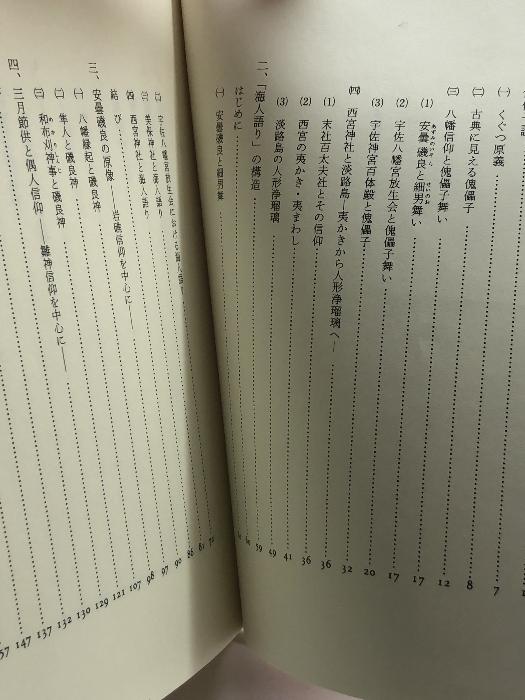 ㈠ くぐつ原義 7
㈡ 古典に見える傀儡子 8
㈢ 八幡信仰と傀儡子舞い 12
(1) 安曇磯良と細男舞い 17
(2) 宇佐八幡宮放生会と傀儡子舞い 17
(3) 宇佐神宮百体殿と傀儡子 20
㈣ 西宮神社と淡路島―夷かきから人形浄瑠璃へ― 32
(1) 末社百太夫社とその信仰 36
(2) 西宮の夷かき・夷まわし 36
(3) 淡路島の人形浄瑠璃 41
49
二、「海人語り」の構造 59
はじめに
㈠ 安曇磯良と細男舞
㈡ 宇佐八幡宮放生会における
㈢ 美保神社と海人語り
㈣ 西宮神社と海人語り
結び――岩礁信仰を中心に――
三、安曇磯良の原像
㈠ 八幡縁起と磯良神
㈡ 隼人と磯良神
㈢ 和布刈神事と磯良神
四、三月節供と偶人信仰――雛神信仰を中心に――
81
86
90
97
98
107
121
129
130
132
137
147
57